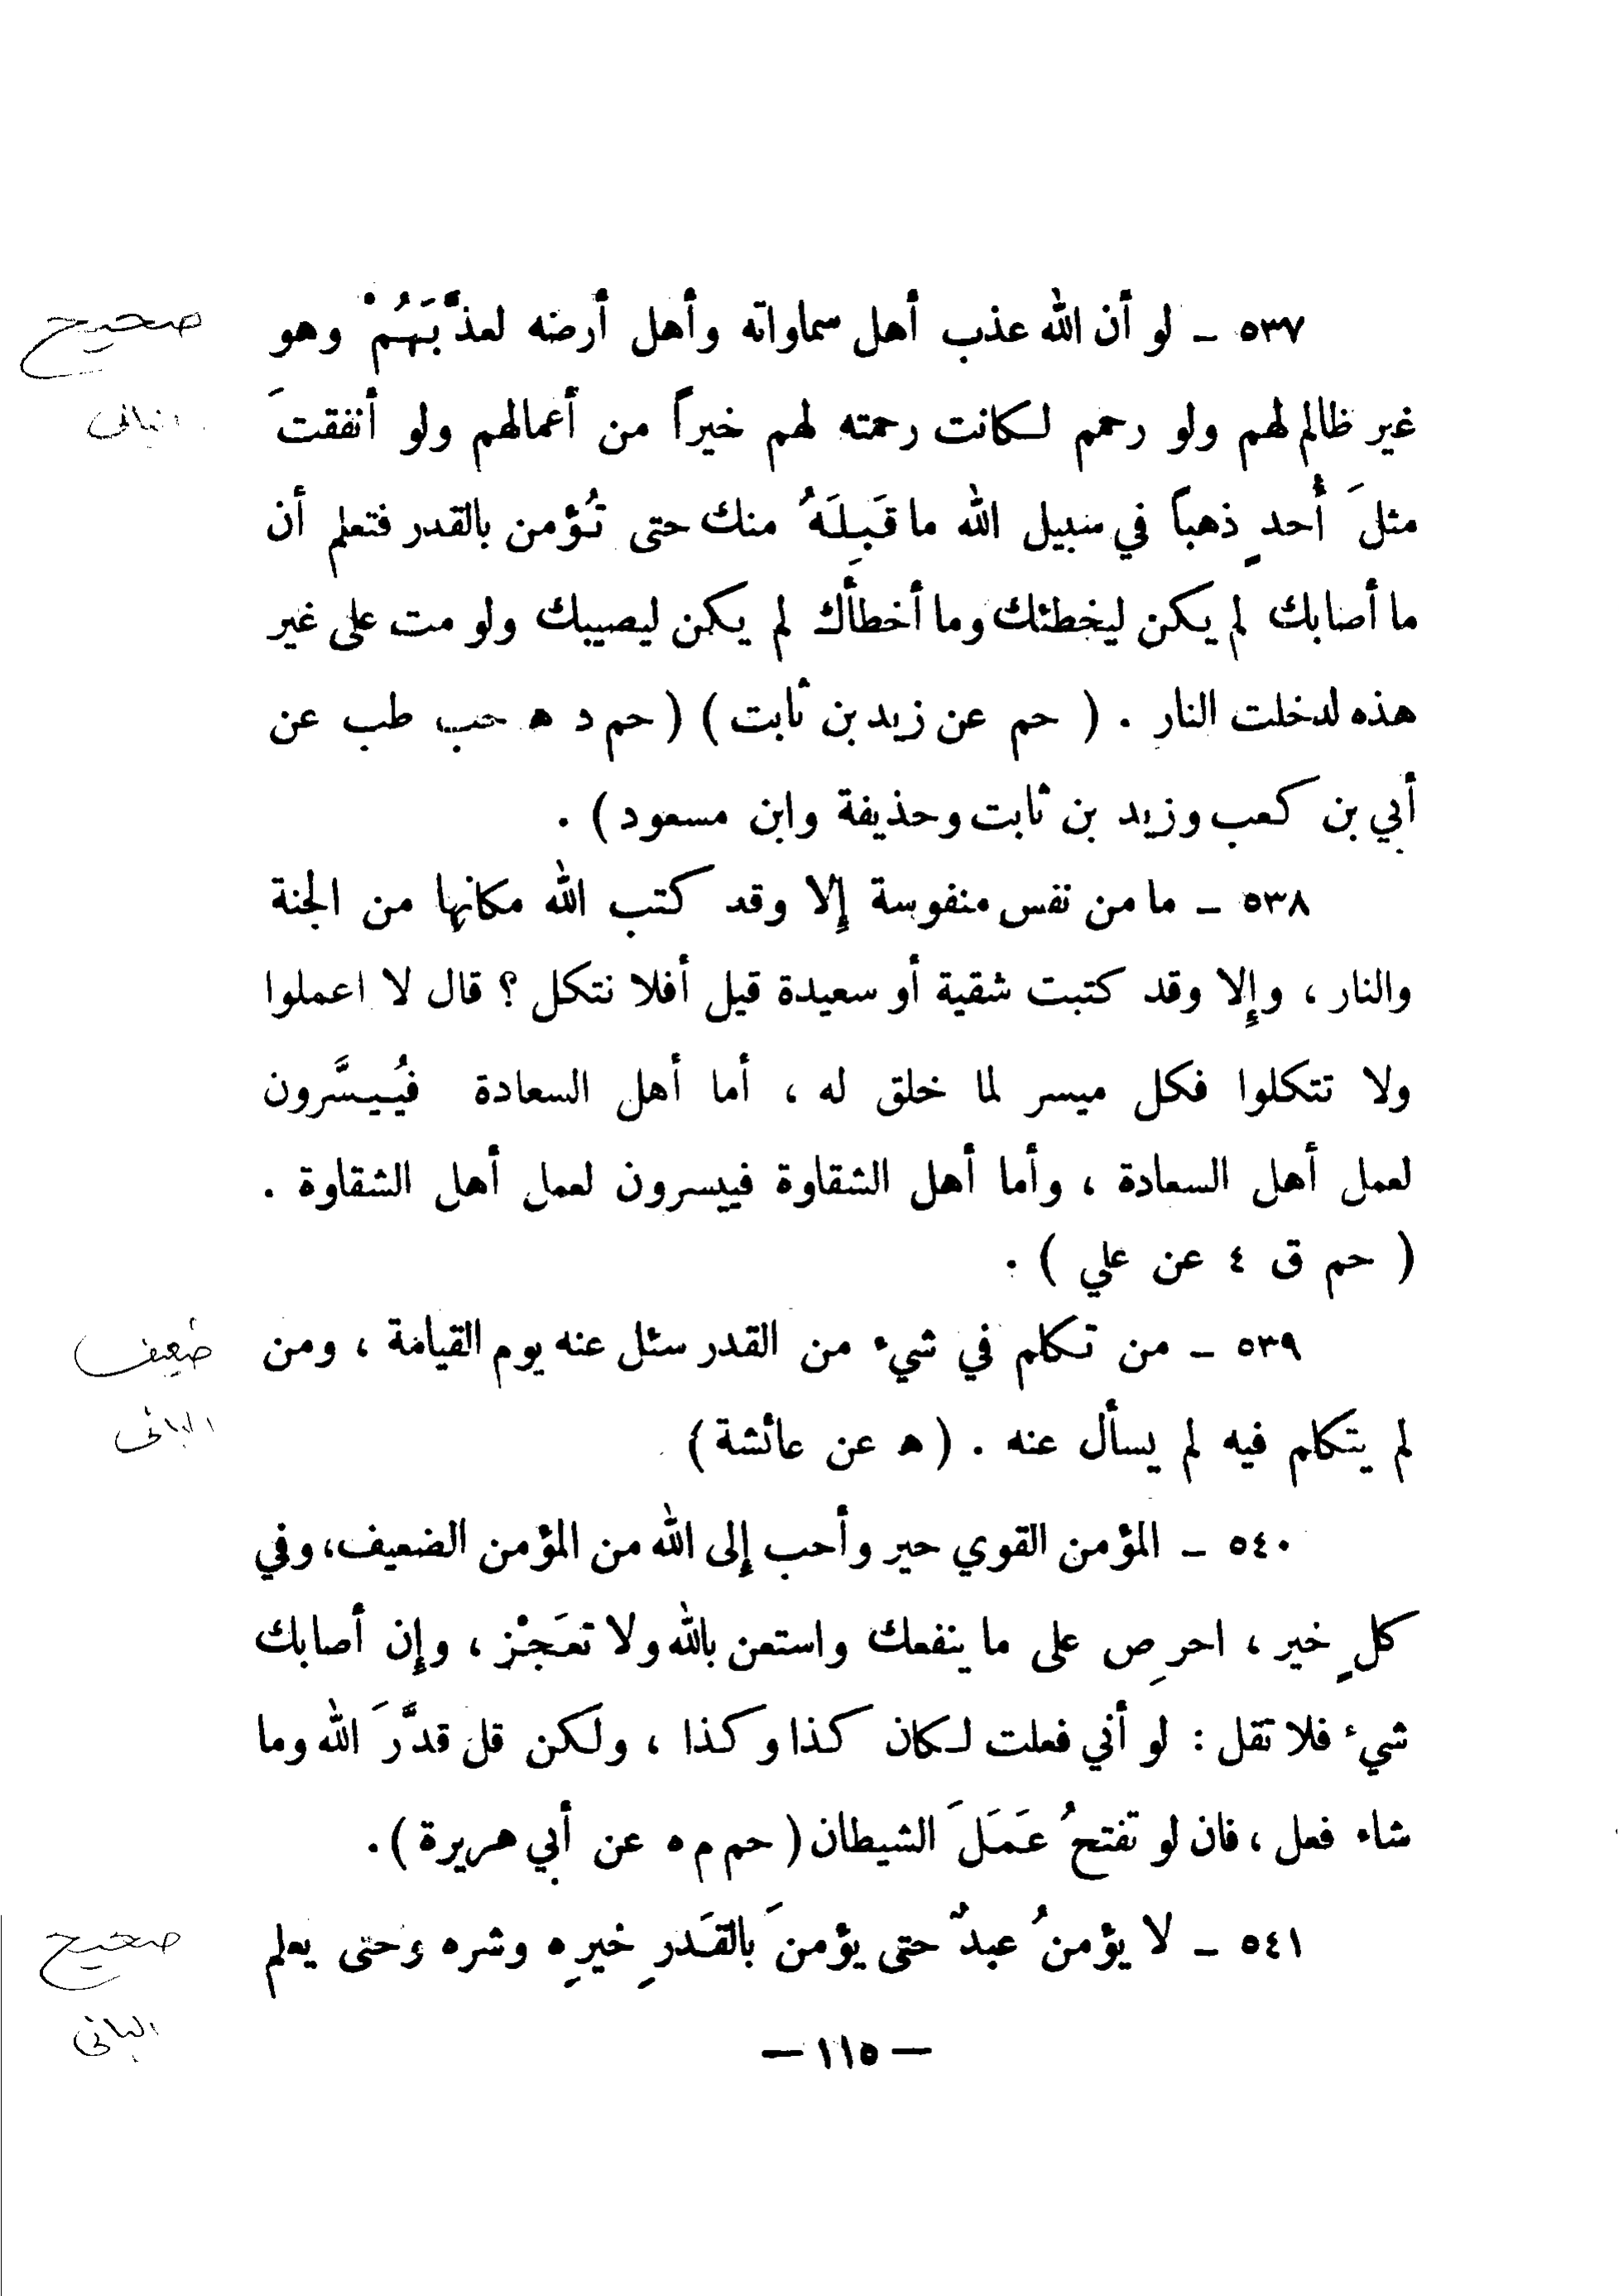 ٥٣٧ ـ لو أن الله عذب أهل سماواته وأهل أرضه لعذَّبَهُمْ وهو
صحيح
غير ظالم لهم ولو رحمم لكانت رحمته لهم خيراً من أعمالهم ولو أنفقتَ
البانى
مثلَ أُحدٍ ذهباً في سبيل الله ما قَبِلَهُ منك حتى تُؤمن بالقدر فتعلم أن
ما أصابك لم يكن ليخطئك وما أخطأك لم يكن ليصيبك ولو مت على غير
هذه لدخلت النار . ( حم عن زيد بن ثابت ) ( حم د ه حب طب عن
أبي بن كعب وزيد بن ثابت وحذيفة وابن مسعود ) .
٥٣٨ ـ ما من نفس منفوسة إلا وقد كتب الله مكانها من الجنة
والنار ، وإلا وقد كتبت شقية أو سعيدة قيل أفلا نتكل ؟ قال لا اعملوا
ولا تتكلوا فكل ميسر لما خلق له ، أما أهل السعادة فيُيسَّرون
لعمل أهل السعادة ، وأما أهل الشقاوة فييسرون لعمل أهل الشقاوة .
( حم ق ٤ عن علي ) .
٥٣٩ ـ من تكلم في شيء من القدر سئل عنه يوم القيامة ، ومن
ضعيف
لم يتكلم فيه لم يسأل عنه . ( ه عن عائشة )
البانى
٥٤٠ ـ المؤمن القوي حير وأحب إلى الله من المؤمن الضعيف، وفي
كلٍ خير ، احرِص على ما ينفعك واستعن بالله ولا تعَجْز ، وإن أصابك
شيء فلا تقل : لو أني فعلت لكان كذا وكذا ، ولكن قل قدَّرَ الله وما
شاء فعل ، فان لو تفتحُ عَمَلَ الشيطان ( حم م ه عن أبي هريرة ) .
٥٤١ ـ لا يؤمنُ عبدٌ حتى يؤمنَ بالقَدرِ خيرِه وشره وحتى يعلم
صحيح
البانى
— ١١٥ —